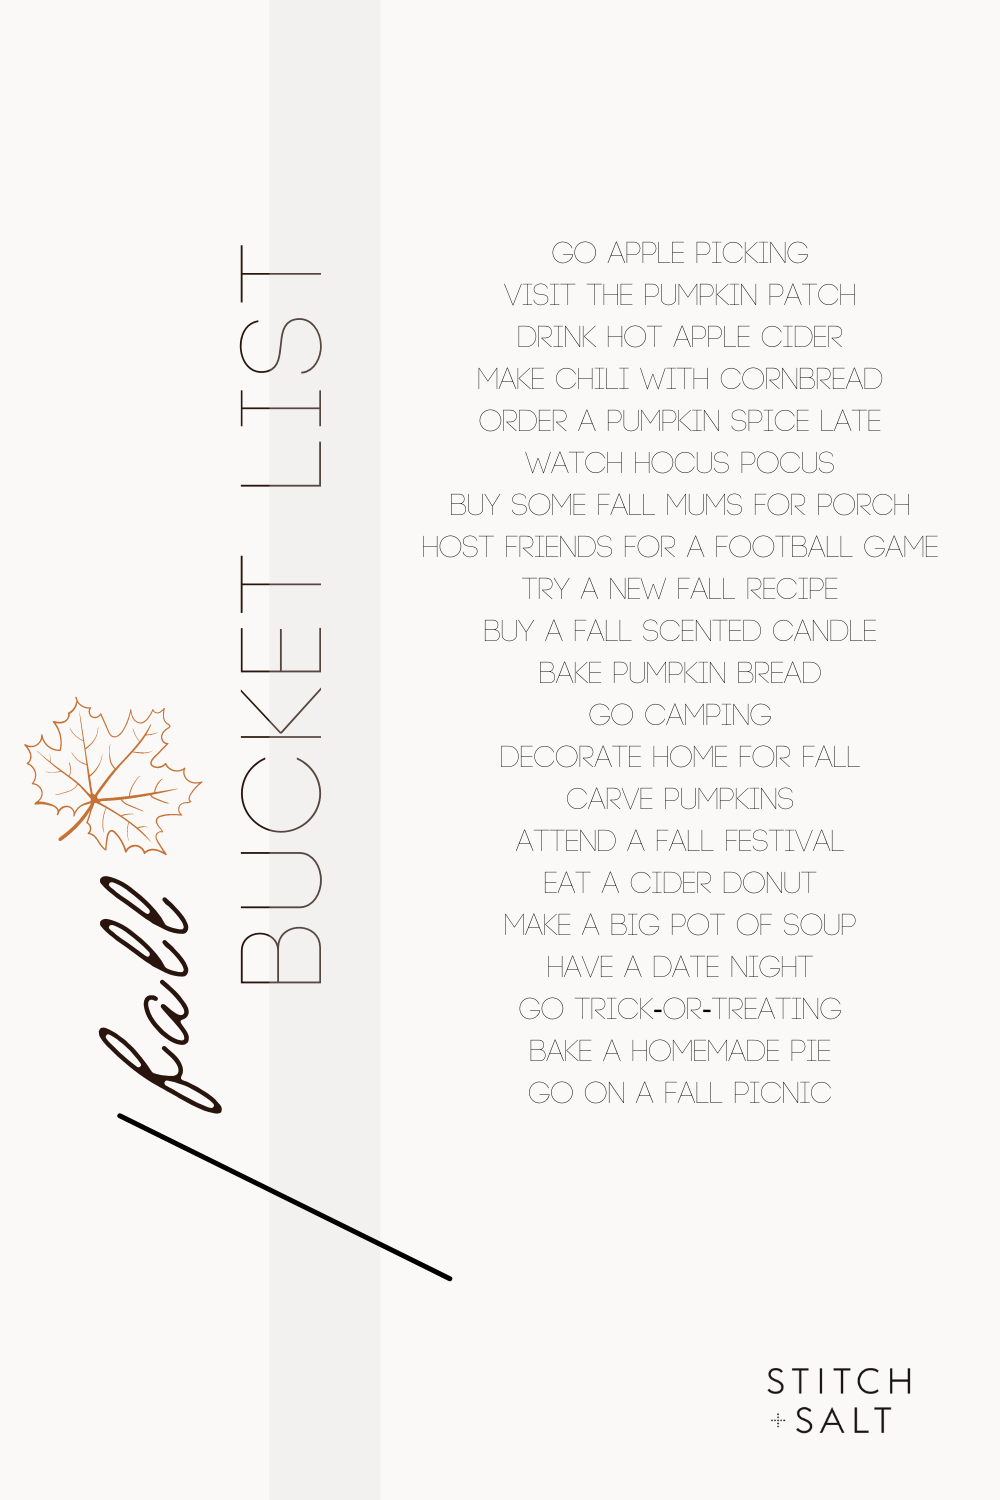 fall
BUCKET LIST
GO APPLE PICKING
VISIT THE PUMPKIN PATCH
DRINK HOT APPLE CIDER
MAKE CHILI WITH CORNBREAD
ORDER A PUMPKIN SPICE LATE
WATCH HOCUS POCUS
BUY SOME FALL MUMS FOR PORCH
HOST FRIENDS FOR A FOOTBALL GAME
TRY A NEW FALL RECIPE
BUY A FALL SCENTED CANDLE
BAKE PUMPKIN BREAD
GO CAMPING
DECORATE HOME FOR FALL
CARVE PUMPKINS
ATTEND A FALL FESTIVAL
EAT A CIDER DONUT
MAKE A BIG POT OF SOUP
HAVE A DATE NIGHT
GO TRICK-OR-TREATING
BAKE A HOMEMADE PIE
GO ON A FALL PICNIC
STITCH
+ SALT